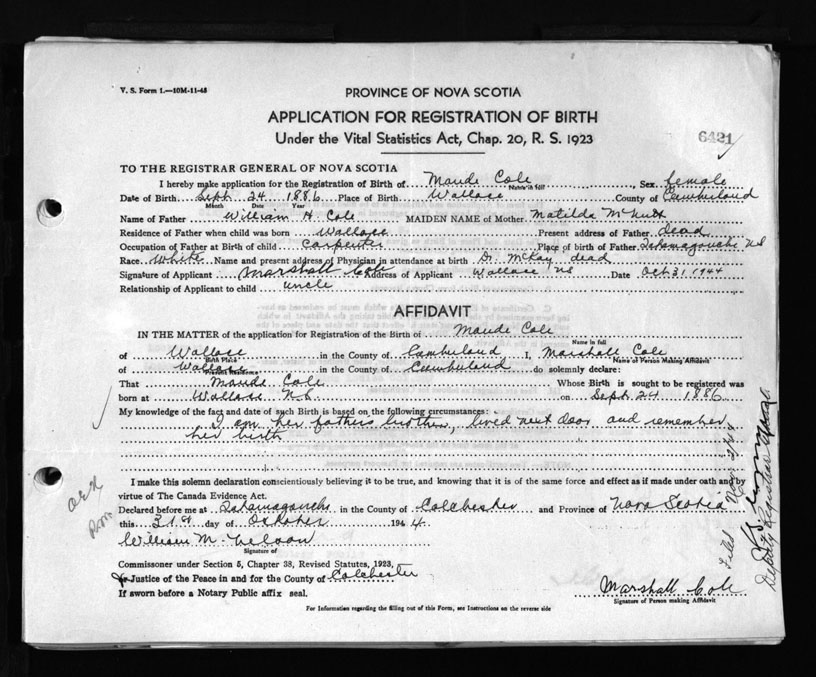 V. S. Form 1.—10M-11-43
PROVINCE OF NOVA SCOTIA
APPLICATION FOR REGISTRATION OF BIRTH
Under the Vital Statistics Act, Chap. 20, R. S. 1923
6421
TO THE REGISTRAR GENERAL OF NOVA SCOTIA
I hereby make application for the Registration of Birth of Maude Cole Sex female
Name in full
Date of Birth Sept. 24 1886 Place of Birth Wallace County of Cumberland
Month Date Year
Name of Father William H. Cole MAIDEN NAME of Mother Matilda McNutt
Residence of Father when child was born Wallace Present address of Father dead
Occupation of Father at Birth of child Carpenter Place of birth of Father Tatamagouche NS
Race White Name and present address of Physician in attendance at birth Dr. McKay dead
Signature of Applicant Marshall Cole Address of Applicant Wallace NS Date Oct 31 1944
Relationship of Applicant to child uncle
AFFIDAVIT
IN THE MATTER of the application for Registration of the Birth of Maude Cole
Name in full
of Wallace in the County of Cumberland I, Marshall Cole
Birth Place Name of Person Making Affidavit
of Wallace in the County of Cumberland do solemnly declare:
Present Residence
That Maude Cole Whose Birth is sought to be registered was
born at Wallace N.S. on Sept 24 1886
My knowledge of the fact and date of such Birth is based on the following circumstances:
I am her fathers brother, lived next door and remember
her birth
I make this solemn declaration conscientiously believing it to be true, and knowing that it is of the same force and effect as if made under oath and by
virtue of The Canada Evidence Act.
Declared before me at Tatamagouche in the County of Colchester and Province of Nova Scotia
this 31st day of October 1944
William M. Nelson
Signature of
Commissioner under Section 5, Chapter 38, Revised Statutes, 1923,
or Justice of the Peace in and for the County of Colchester
If sworn before a Notary Public affix seal.
Marshall Cole
Signature of Person making Affidavit
For Information regarding the filling out of this Form, see Instructions on the reverse side
Filed Nov. 2/44
Deputy Registrar General